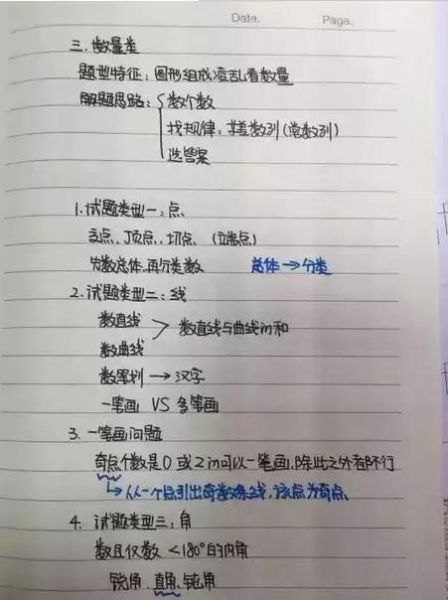 Date.
Page.
三、数量类
题型特征：图形组成凌乱看数量
解题思路：数个数
找规律：等差数列(常数列)
选答案
1.试题类型一：点
交点、顶点、切点、(立端点)
先数总体,再分类数 总体→分类
2.试题类型二：线
数直线
数直线与曲线的和
数曲线
数笔划→汉字
一笔画 VS 多笔画
3.一笔画问题
奇点个数是0或2的可以一笔画,除此之外都不行
从一个点引出奇数条线,该点为奇点
4.试题类型三：角
数且仅数<180°的内角
锐角、直角、钝角